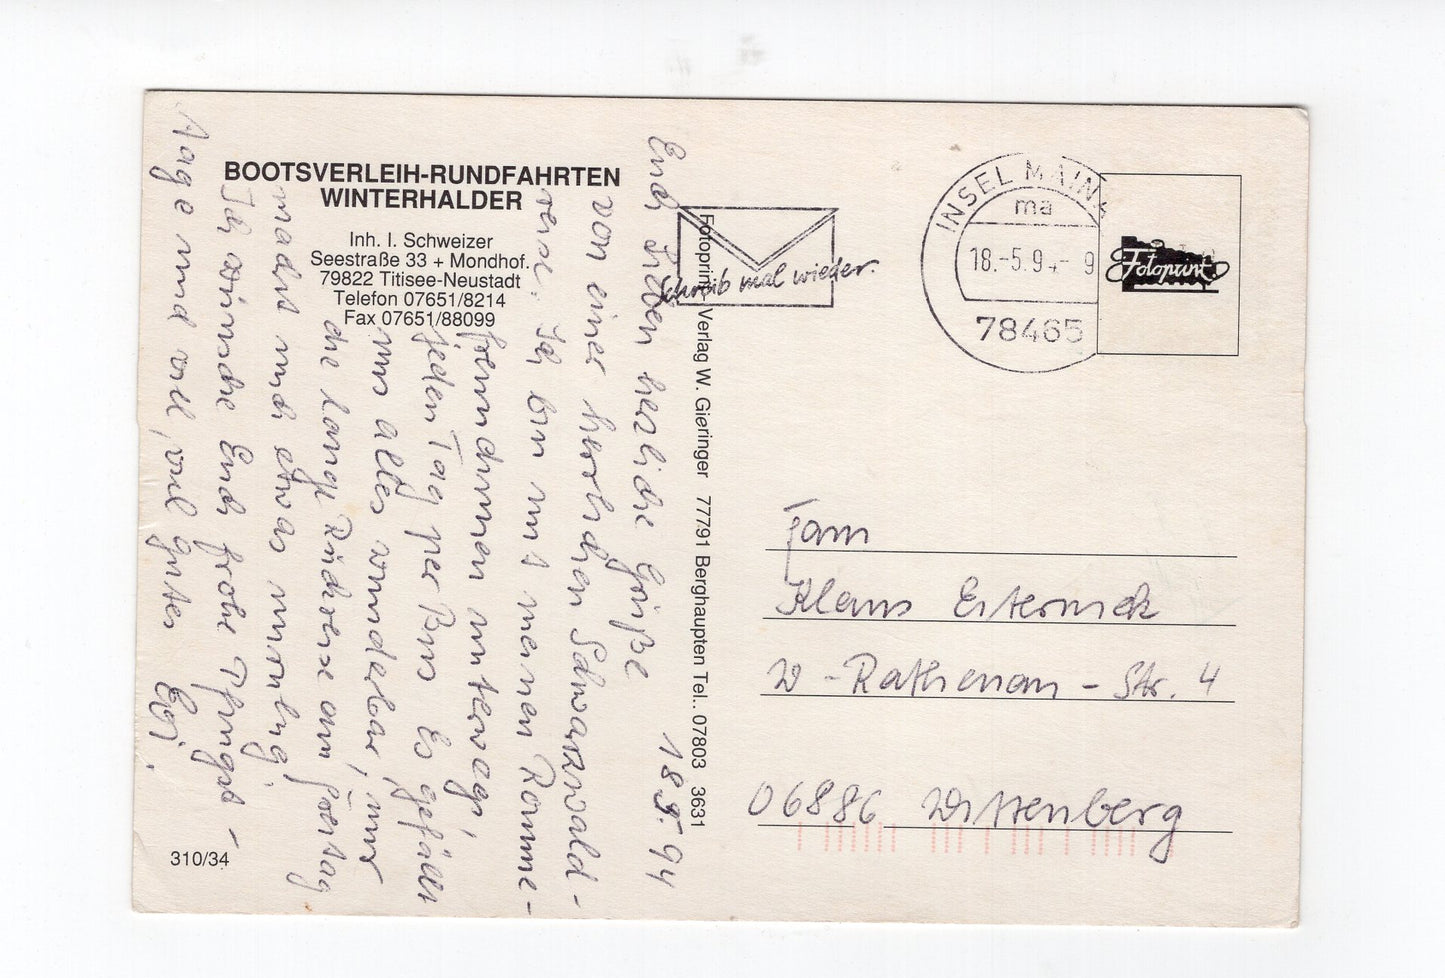 BOOTSVERLEIH-RUNDFAHRTEN
WINTERHALDER
Inh. I. Schweizer
Seestraße 33 + Mondhof.
79822 Titisee-Neustadt
Telefon 07651/8214
Fax 07651/88099
310/34
18.5.94
Euch Lieben herzliche Grüße
von einer herrlichen Schwarzwald-
reise. Ich bin mit meinen Romme-
freundinnen unterwegs,
jeden Tag per Bus. Es gefällt
uns alles wunderbar, nur
die lange Rückreise am Freitag
macht mich etwas unruhig.
Ich wünsche Euch frohe Pfingst-
tage und viel, viel Gutes
Fotoprint Verlag W. Gieringer 77791 Berghaupten Tel.. 07803 3631
Schreib mal wieder.
INSEL MAINA
ma
18.-5.94- 9
78465
Fotoprint
Fam
Klaus
W-Rathenau-Str. 4
06886 Wittenberg